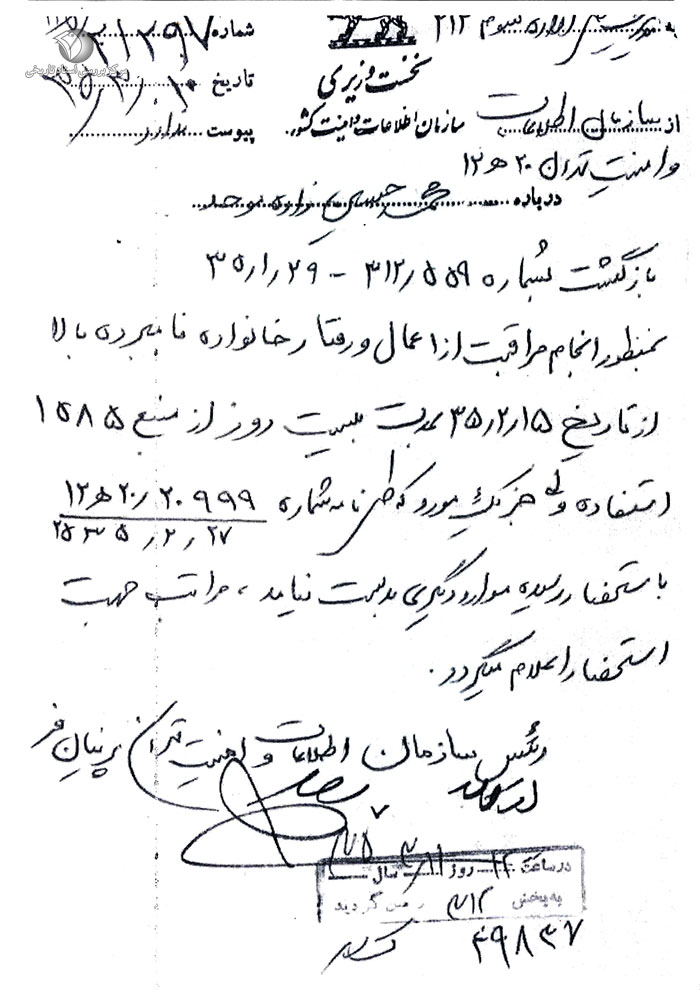 به ریاست اداره سوم ۳۱۲
شماره
مرکز بررسی اسناد تاریخی
نخست وزیری
تاریخ ۳۵/۳/۱۰
از سازمان اطلاعات
سازمان اطلاعات و امنیت کشور
پیوست ندارد
و امنیت تهران ۲۰ ه‍ ۱۲
درباره محمد حسین
بازگشت بشماره ۳۱۲/۵۵۹ – ۳۵/۱/۲۹
بمنظور انجام مراقبت از اعمال و رفتار خانواده نامبرده بالا
از تاریخ ۳۵/۲/۱۵ بمدت بیست روز از منبع ۱۵۸۵
استفاده ولی جز یک مورد که طی نامه شماره ۲۰۹۹۹/۲۰ ه‍ ۱۲
۲۵۳۵/۲/۲۷
باستحضار رسیده موارد دیگری بدست نیامد، مراتب جهت
استحضار اعلام میگردد.
رئیس سازمان اطلاعات و امنیت تهران پرنیان فر
در ساعت روز سال
به بخش ۳۱۲ گردید
۴۹۸۳۷